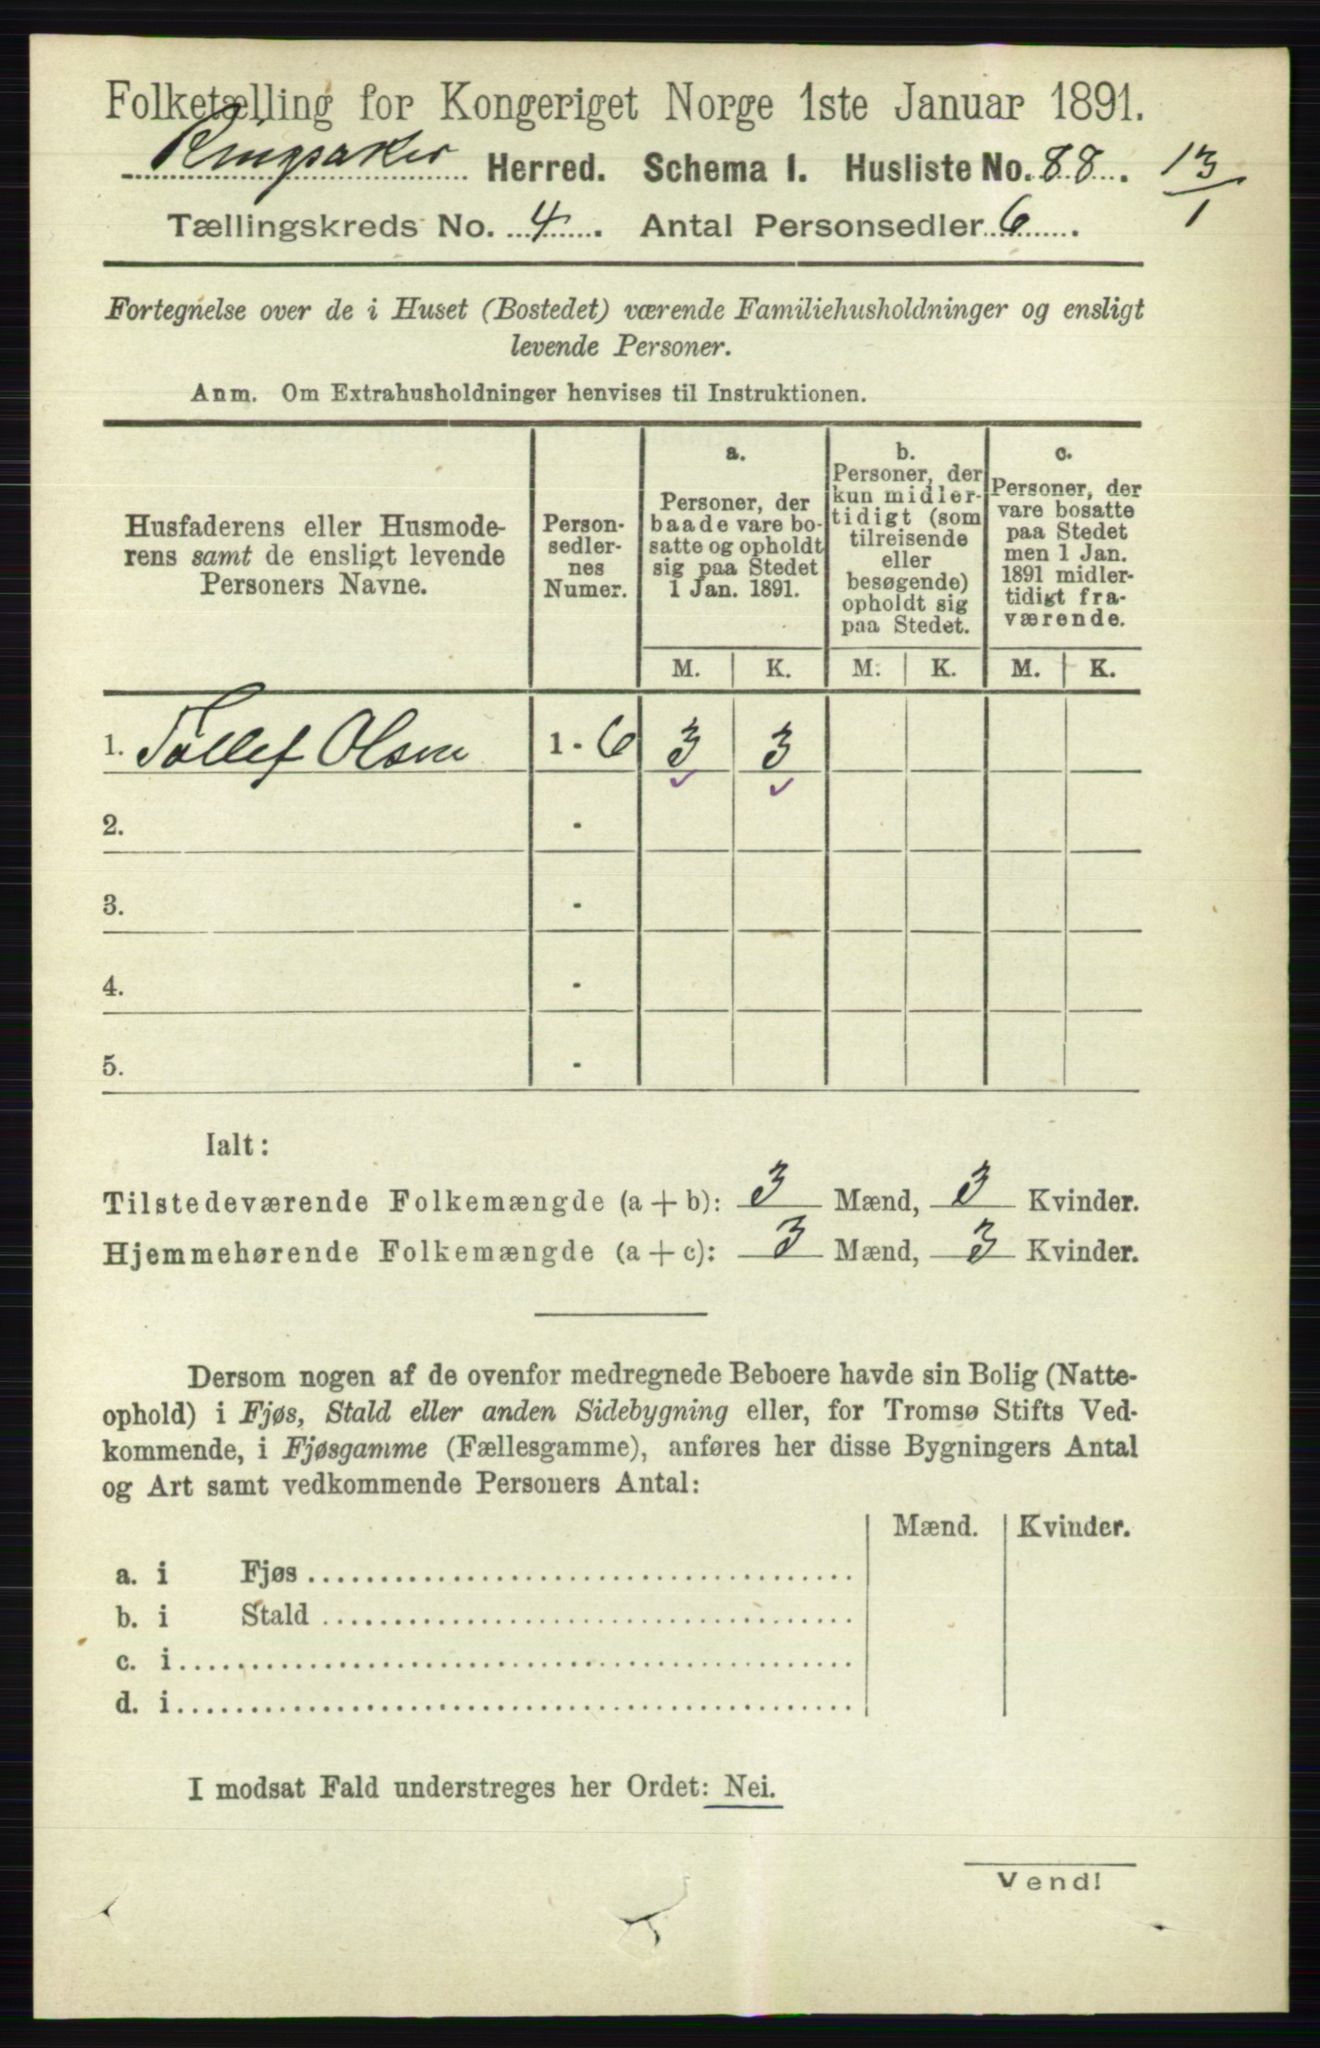 Folketælling for Kongeriget Norge 1ste Januar 1891.
Ringsaker Herred. Schema I. Husliste No. 88. 13/1
Tællingskreds No. 4. Antal Personsedler 6.
Fortegnelse over de i Huset (Bostedet) værende Familiehusholdninger og ensligt
levende Personer.
Anm. Om Extrahusholdninger henvises til Instruktionen.
Husfaderens eller Husmode-
rens samt de ensligt levende
Personers Navne.
Person-
sedler-
nes
Numer.
a.
Personer, der
baade vare bo-
satte og opholdt
sig paa Stedet
1 Jan. 1891.
b.
Personer, der
kun midler-
tidigt (som
tilreisende
eller
besøgende)
opholdt sig
paa Stedet.
c.
Personer, der
vare bosatte
paa Stedet
men 1 Jan.
1891 midler-
tidigt fra-
værende.
M. K. M. K. M. K.
1. Tollef Olsen 1 - 6 3 3
2. -
3. -
4. -
5. -
Ialt:
Tilstedeværende Folkemængde (a + b): 3 Mænd, 3 Kvinder.
Hjemmehørende Folkemængde (a + c): 3 Mænd, 3 Kvinder.
Dersom nogen af de ovenfor medregnede Beboere havde sin Bolig (Natte-
ophold) i Fjøs, Stald eller anden Sidebygning eller, for Tromsø Stifts Ved-
kommende, i Fjøsgamme (Fællesgamme), anføres her disse Bygningers Antal
og Art samt vedkommende Personers Antal:
Mænd. Kvinder.
a. i Fjøs
b. i Stald
c. i
d. i
I modsat Fald understreges her Ordet: Nei.
Vend!